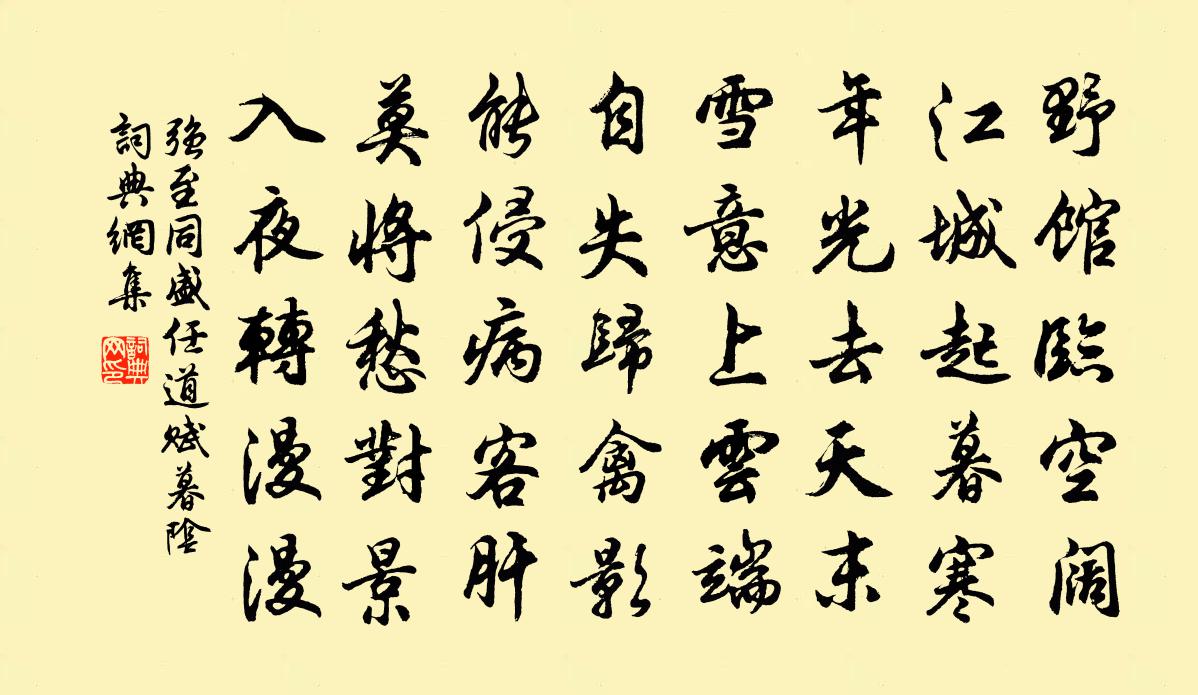 野馆臨空阔
江城起暮寒
年光去天末
雪意上雲端
自失歸禽影
能侵病客肝
莫將愁對景
入夜轉漫漫
強至同盛任道赋暮陰
詞典網集
詞典
网印